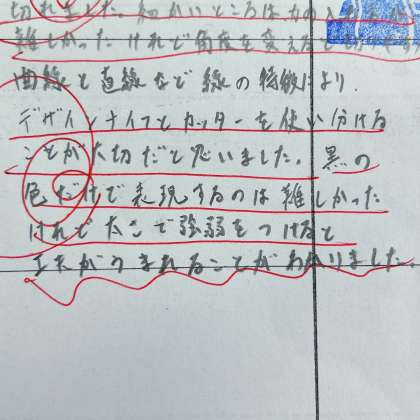 切れました。細かいところは力の入
難しかったけれど角度を変えると
曲線と直線など線の特徴により、
デザインナイフとカッターを使い分ける
ことが大切だと思いました。黒の
色だけで表現するのは難しかった
けれどたこで強弱をつけると
がうまれることがわかりました。